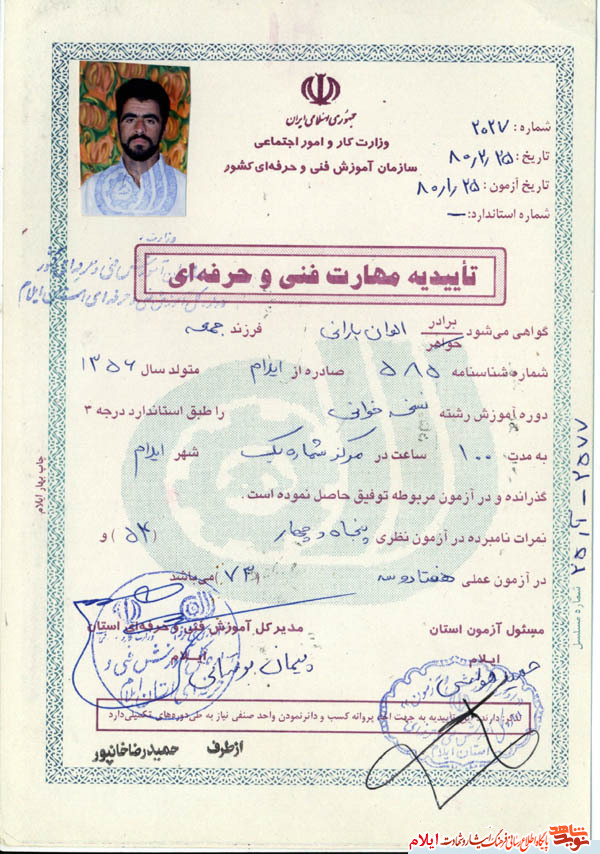 جمهوری اسلامی ایران
وزارت کار و امور اجتماعی
سازمان آموزش فنی و حرفه‌ای کشور
شماره: ۲۰۲۷
تاریخ: ۸۰,۲,۲۵
تاریخ آزمون: ۸۰,۱,۲۵
شماره استاندارد: —
تأییدیه مهارت فنی و حرفه‌ای
گواهی می‌شود برادر خواهر الوان بارانی فرزند جمعه
شماره شناسنامه ۵۸۵ صادره از ایلام متولد سال ۱۳۵۶
دوره آموزش رشته نسخه خوانی را طبق استاندارد درجه ۳
به مدت ۱۰۰ ساعت در مرکز شماره یک شهر ایلام
گذرانده و در آزمون مربوطه توفیق حاصل نموده است.
نمرات نامبرده در آزمون نظری پنجاه و چهار (۵۴) و
در آزمون عملی هفتاد و سه (۷۳) می‌باشد
مسئول آزمون استان
مدیر کل آموزش فنی و حرفه‌ای استان
ایلام
ایلام
تأییدیه به جهت اخذ پروانه کسب و دائر نمودن واحد صنفی نیاز به طی دوره‌های تکمیلی دارد
از طرف حمیدرضا خانپور
چاپ بهار ایلام
شماره مسلسل
نوید شاهد
پایگاه اطلاع رسانی فرهنگ ایثار و شهادت ایلام